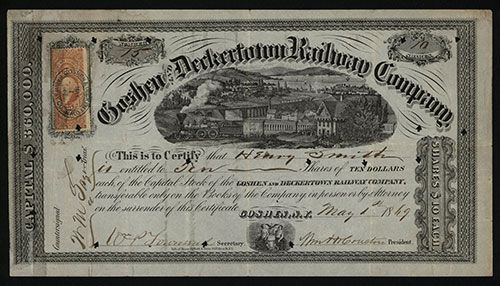 10
Goshen and Deckertown Railway Company
CAPITAL $360,000.
SHARES $10 EACH
This is to Certify that Henry Smith
is entitled to Ten Shares of TEN DOLLARS
each of the Capital Stock of the GOSHEN AND DECKERTOWN RAILWAY COMPANY,
transferable only on the Books of the Company in person or by Attorney
on the surrender of this Certificate
GOSHEN, N.Y. May 1st 1869
Countersigned
Secretary.
President.